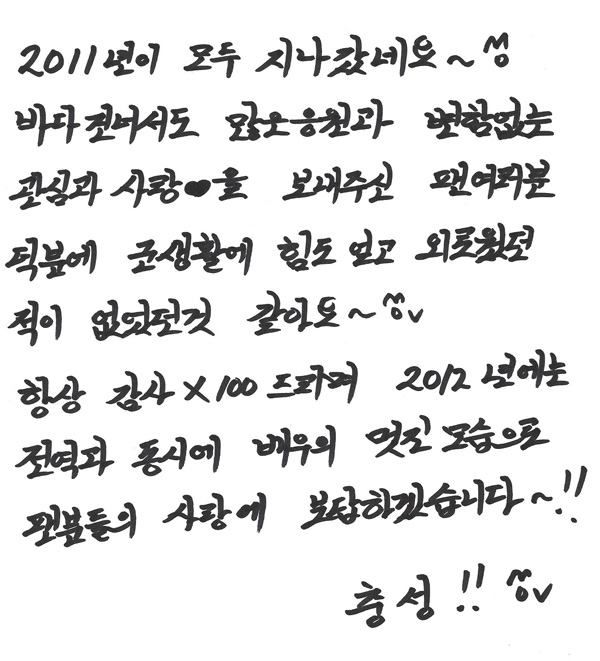 2011년이 모두 지나갔네요~^^
바다건너서도 많은응원과 변함없는
관심과 사랑♥을 보내주신 팬여러분
덕분에 군생활에 힘도 얻고 외로웠던
적이 없었던것 같아요~^^v
항상 감사×100 드리며 2012년에는
전역과 동시에 배우의 멋진모습으로
팬분들의 사랑에 보답하겠습니다~!!
충성!! ^^v